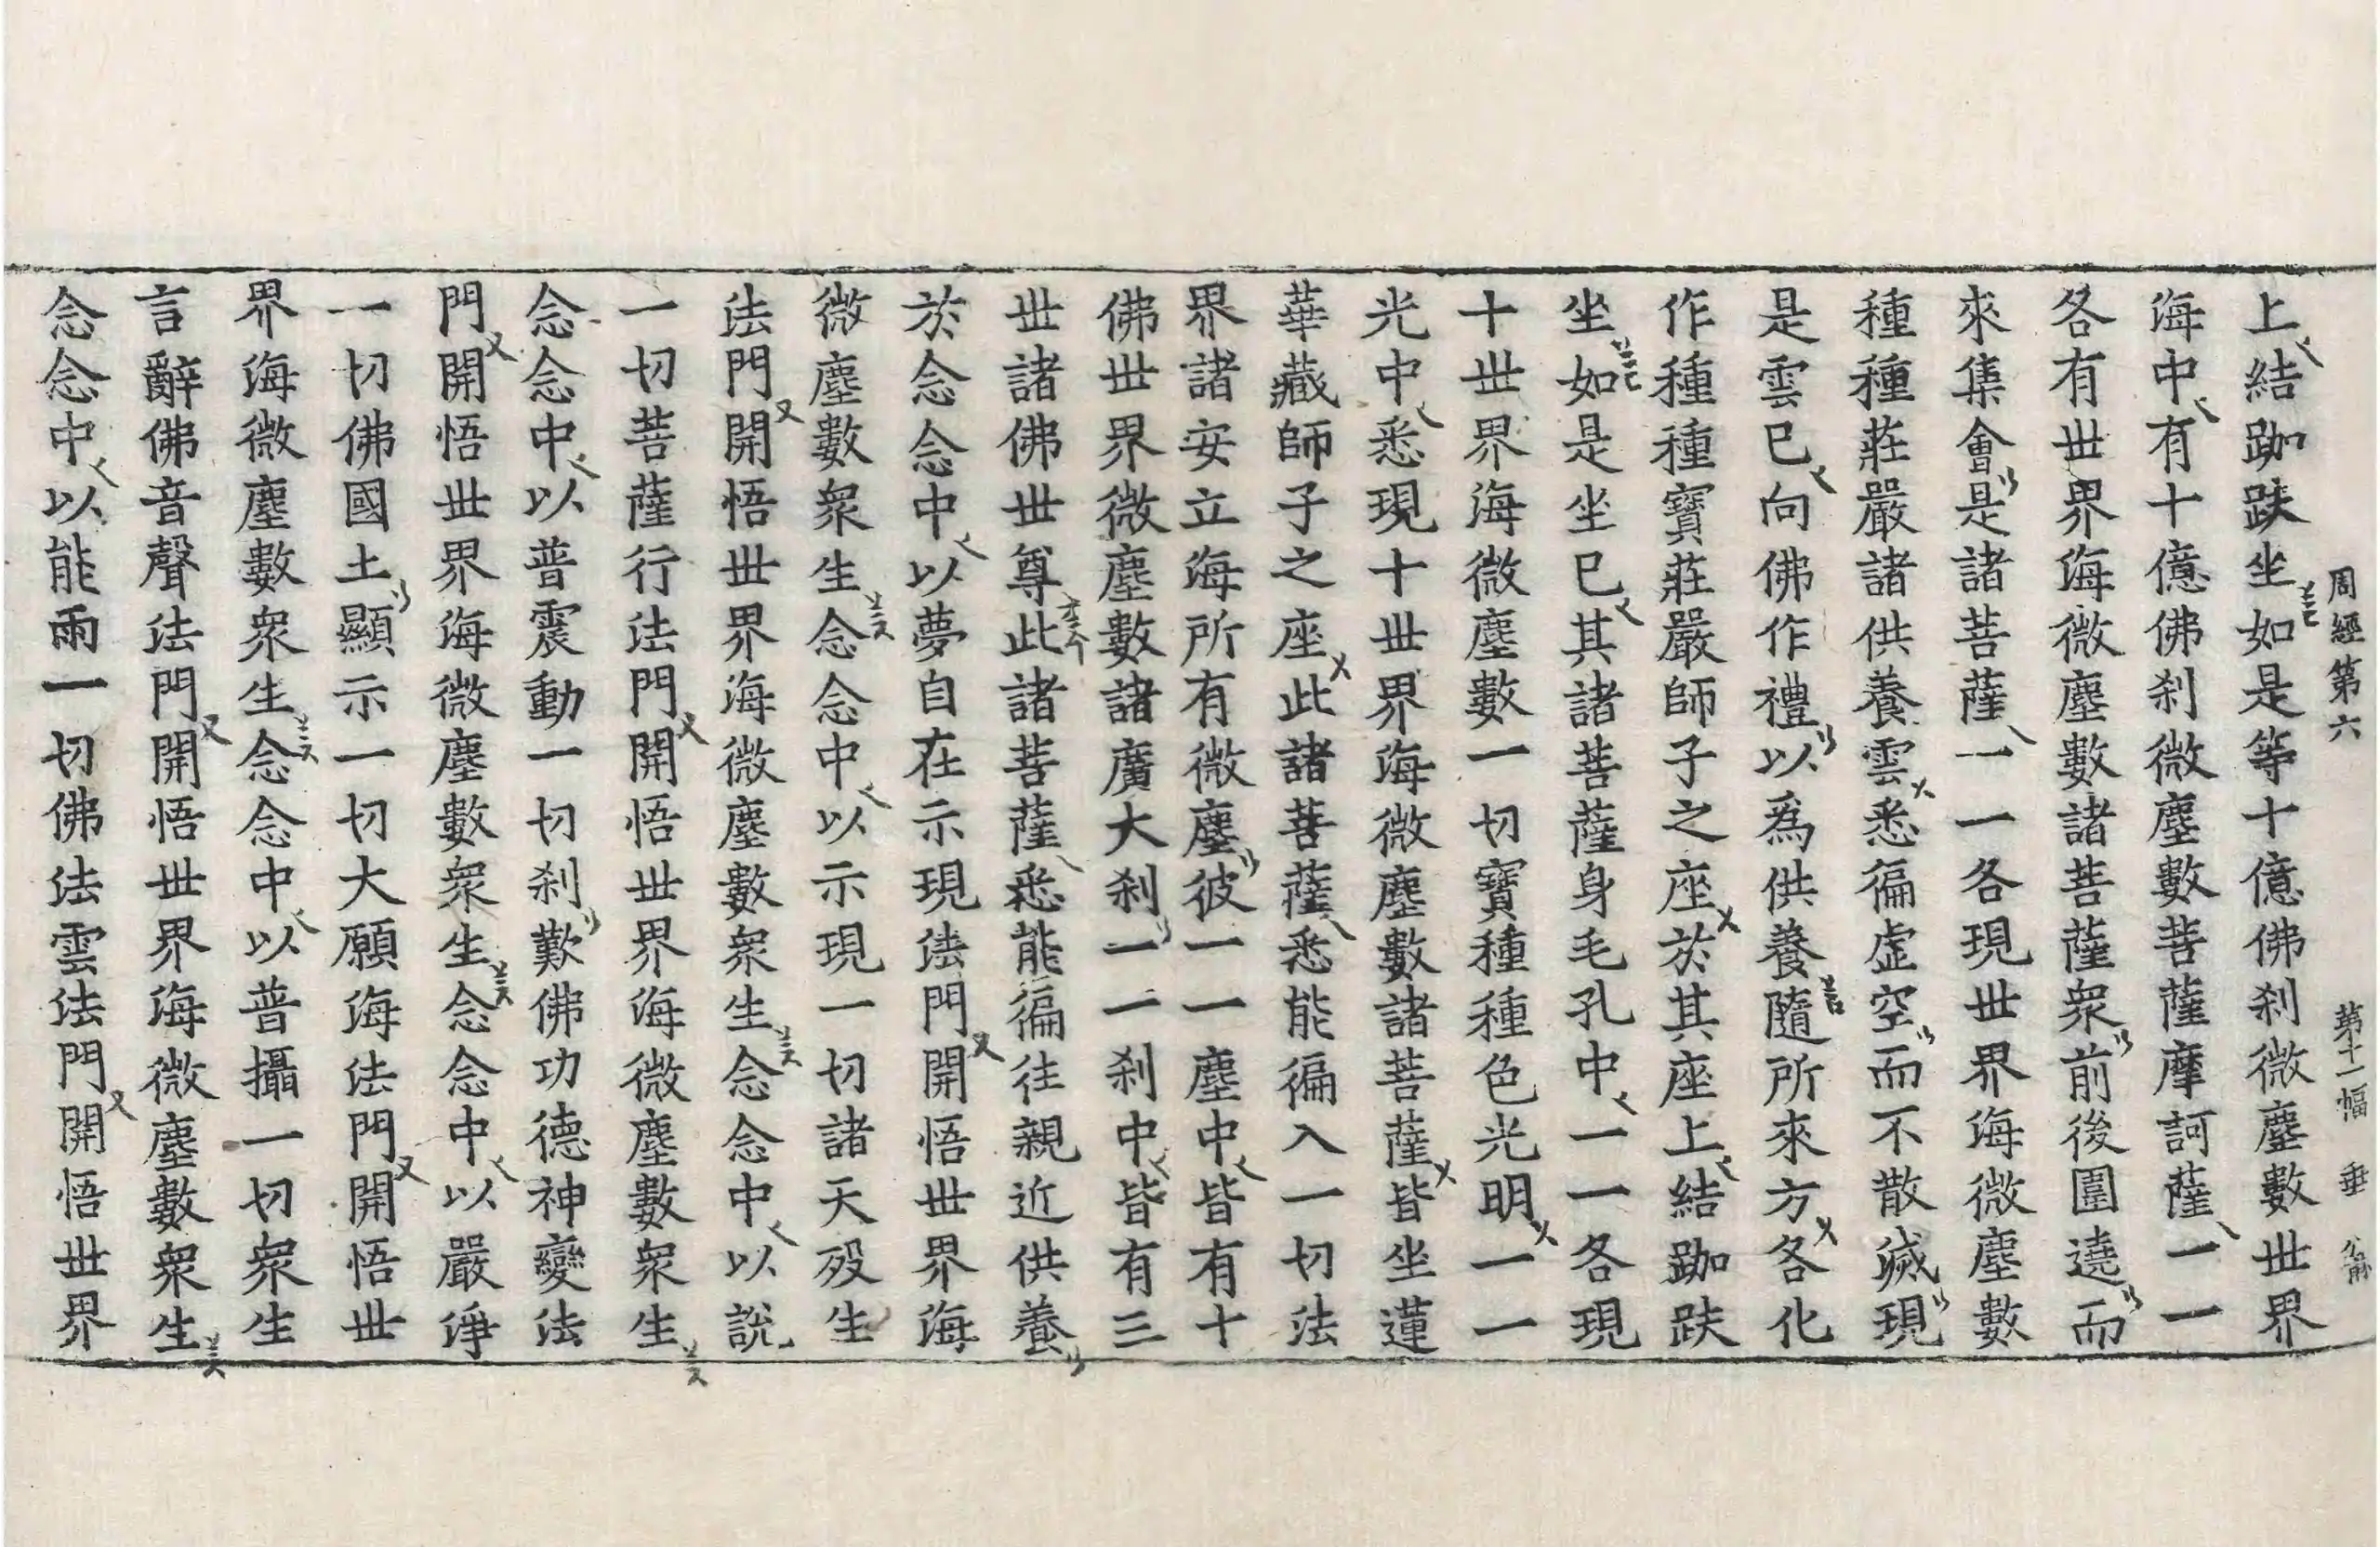 周經第六 第十一幅 垂
上結跏趺坐如是等十億佛刹微塵數世界
海中有十億佛刹微塵數菩薩摩訶薩一一
各有世界海微塵數諸菩薩衆前後圍遶而
來集會是諸菩薩一一各現世界海微塵數
種種莊嚴諸供養雲悉徧虛空而不散滅現
是雲已向佛作禮以爲供養隨所來方各化
作種種寶莊嚴師子之座於其座上結跏趺
坐如是坐已其諸菩薩身毛孔中一一各現
十世界海微塵數一切寶種種色光明一一
光中悉現十世界海微塵數諸菩薩皆坐蓮
華藏師子之座此諸菩薩悉能徧入一切法
界諸安立海所有微塵彼一一塵中皆有十
佛世界微塵數諸廣大刹一一刹中皆有三
世諸佛世尊此諸菩薩悉能徧往親近供養
於念念中以夢自在示現法門開悟世界海
微塵數衆生念念中以示現一切諸天歿生
法門開悟世界海微塵數衆生念念中以說
一切菩薩行法門開悟世界海微塵數衆生
念念中以普震動一切刹歎佛功德神變法
門開悟世界海微塵數衆生念念中以嚴淨
一切佛國土顯示一切大願海法門開悟世
界海微塵數衆生念念中以普攝一切衆生
言辭佛音聲法門開悟世界海微塵數衆生
念念中以能雨一切佛法雲法門開悟世界